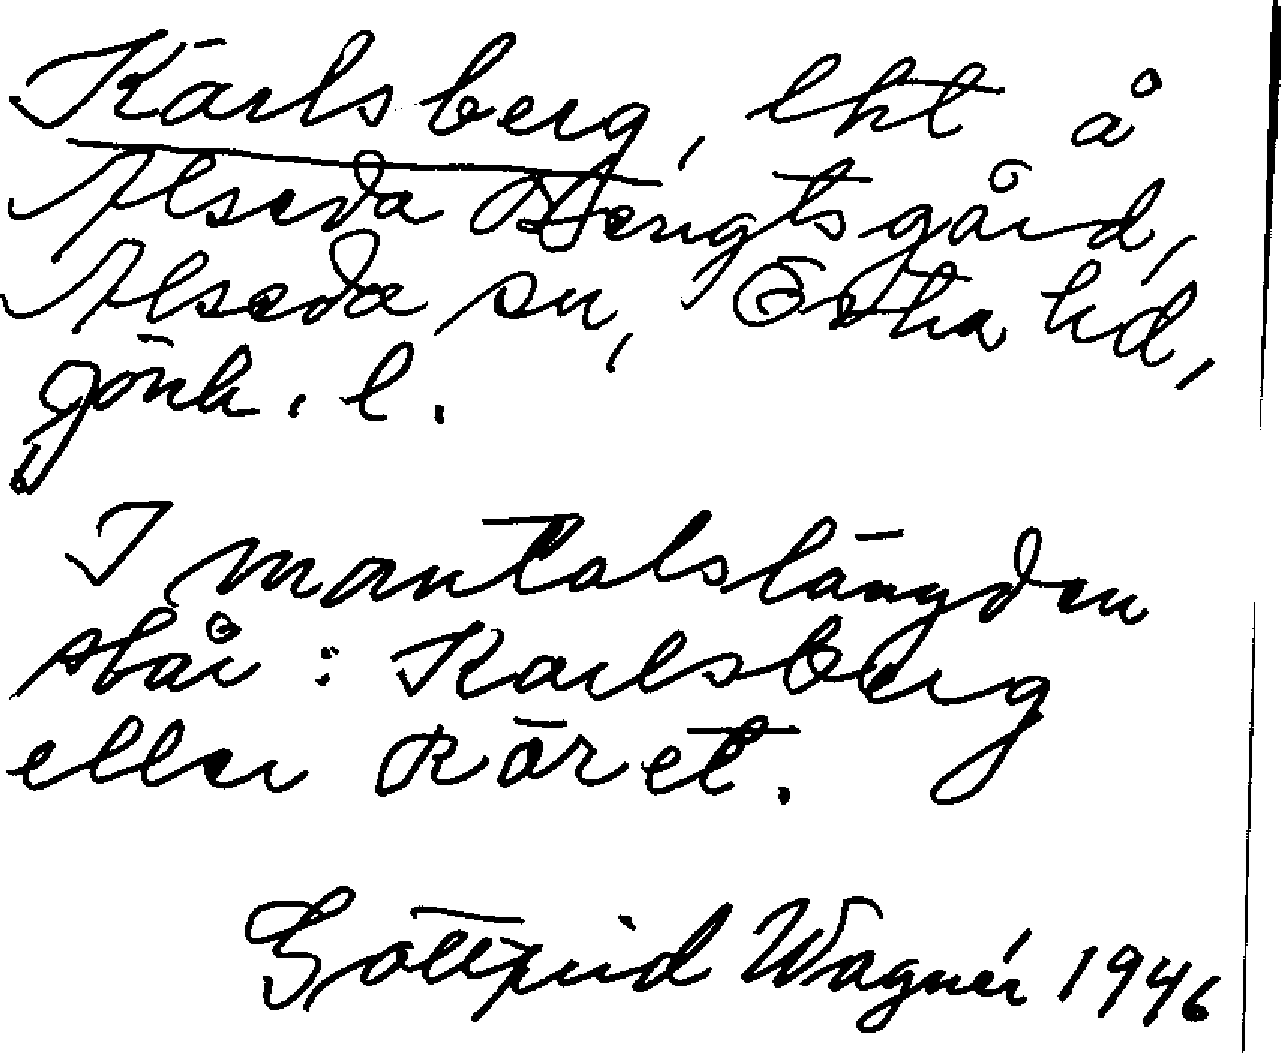 Kärlsberg, lht å
Alseda Bengtsgård,
Alseda sn, Östra hd,
Jönk. l.
I mantalslängden
står: Karlsberg
eller Röret.
Gottfrid Wagnér 1946